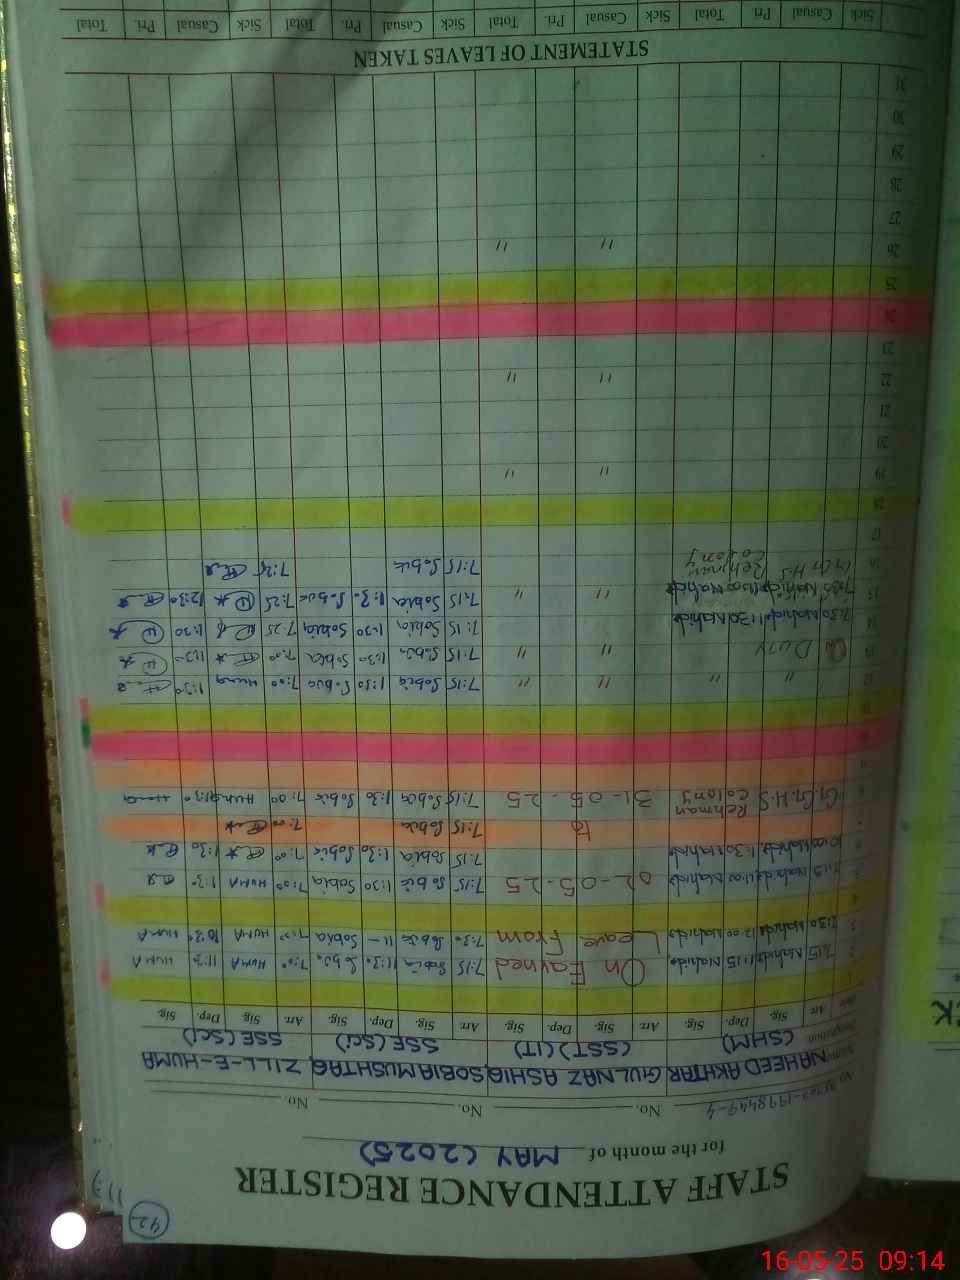 42
STAFF ATTENDANCE REGISTER
for the month of MAY (2025)
No. No. No.
NAHEED AKHTAR GULNAZ ASHIQ SOBIA MUSHTAQ ZILL-E-HUMA
(SHM) (SST)(IT) SSE (Sci) SSE (SCI)
Date Arr. Sig. Dep. Sig. Arr. Sig. Dep. Sig. Arr. Sig. Dep. Sig. Arr. Sig. Dep. Sig.
1
2 7:15 Nahida 1:15 Nahida On Earned 7:15 Sobia 11:30 Sobia 7:00 HUMA 11:30 HUMA
3 7:30 Nahida 12:00 Nahida Leave From 7:30 Sobia 11- Sobia HUMA HUMA
4
5 7:15 Nahida 11:00 Nahida 02-05-25 7:15 Sobia 1:30 Sobia 7:00 HUMA 1:30
6 10:00 Nahida 1:30 Nahida 7:15 Sobia 1:30 Sobia 7:00 1:30
7 to 7:15 Sobia 7:00
8 G.G.H.S Rehman Colony 31-05-25 7:15 Sobia 1:30 Sobia 7:00 HUMA 1:30 Huma
9
10
11
12 " " " " 7:15 Sobia 1:30 Sobia 7:00 Huma 1:30
13 On Duty " " 7:15 Sobia 1:30 Sobia 7:00 1:30
14 7:30 Nahida 1:30 Nahida 7:15 Sobia 1:30 Sobia 7:25 1:30
15 7:30 Nahida 11:00 Nahida " " 7:15 Sobia 1:30 Sobia 7:25 12:30
16 G.G.H.S Rehman Colony 7:15 Sobia 7:25
17
18
19 " "
20
21
22 " "
23
24
25
26 " "
27
28
29
30
31
STATEMENT OF LEAVES TAKEN
Sick Casual Pri. Total Sick Casual Pri. Total Sick Casual Pri. Total Sick Casual Pri. Total
16-05-25 09:14